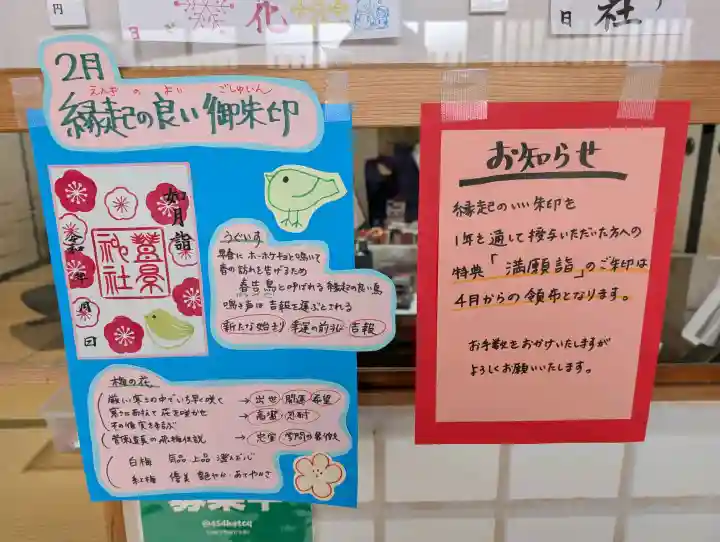 円
花
日
社
2月
えんぎ の よい ごしゅいん
縁起の良い御朱印
如月詣
豊景神社
令和 年 月 日
うぐいす
早春に ホーホケキョと鳴いて
春の訪れを告げるため
春告鳥と呼ばれる縁起の良い鳥
鳴き声は 吉報を運ぶとされる
新たな始まり 幸運の前ぶれ 吉報
梅の花
厳しい寒さの中でいち早く咲く → 出世 開運 希望
寒さに耐えて 花を咲かせ → 高潔・忍耐
その後実を結ぶ
菅原道真の飛梅伝説 → 忠実 学問の象徴
白梅 気品 上品 澄んだ心
紅梅 優美 艶やか・あでやかさ
お知らせ
縁起のいい朱印を
1年を通して授与いただいた方への
特典「満願詣」のご朱印は
4月からの領布となります。
お手数をおかけいたしますが
よろしくお願いいたします。